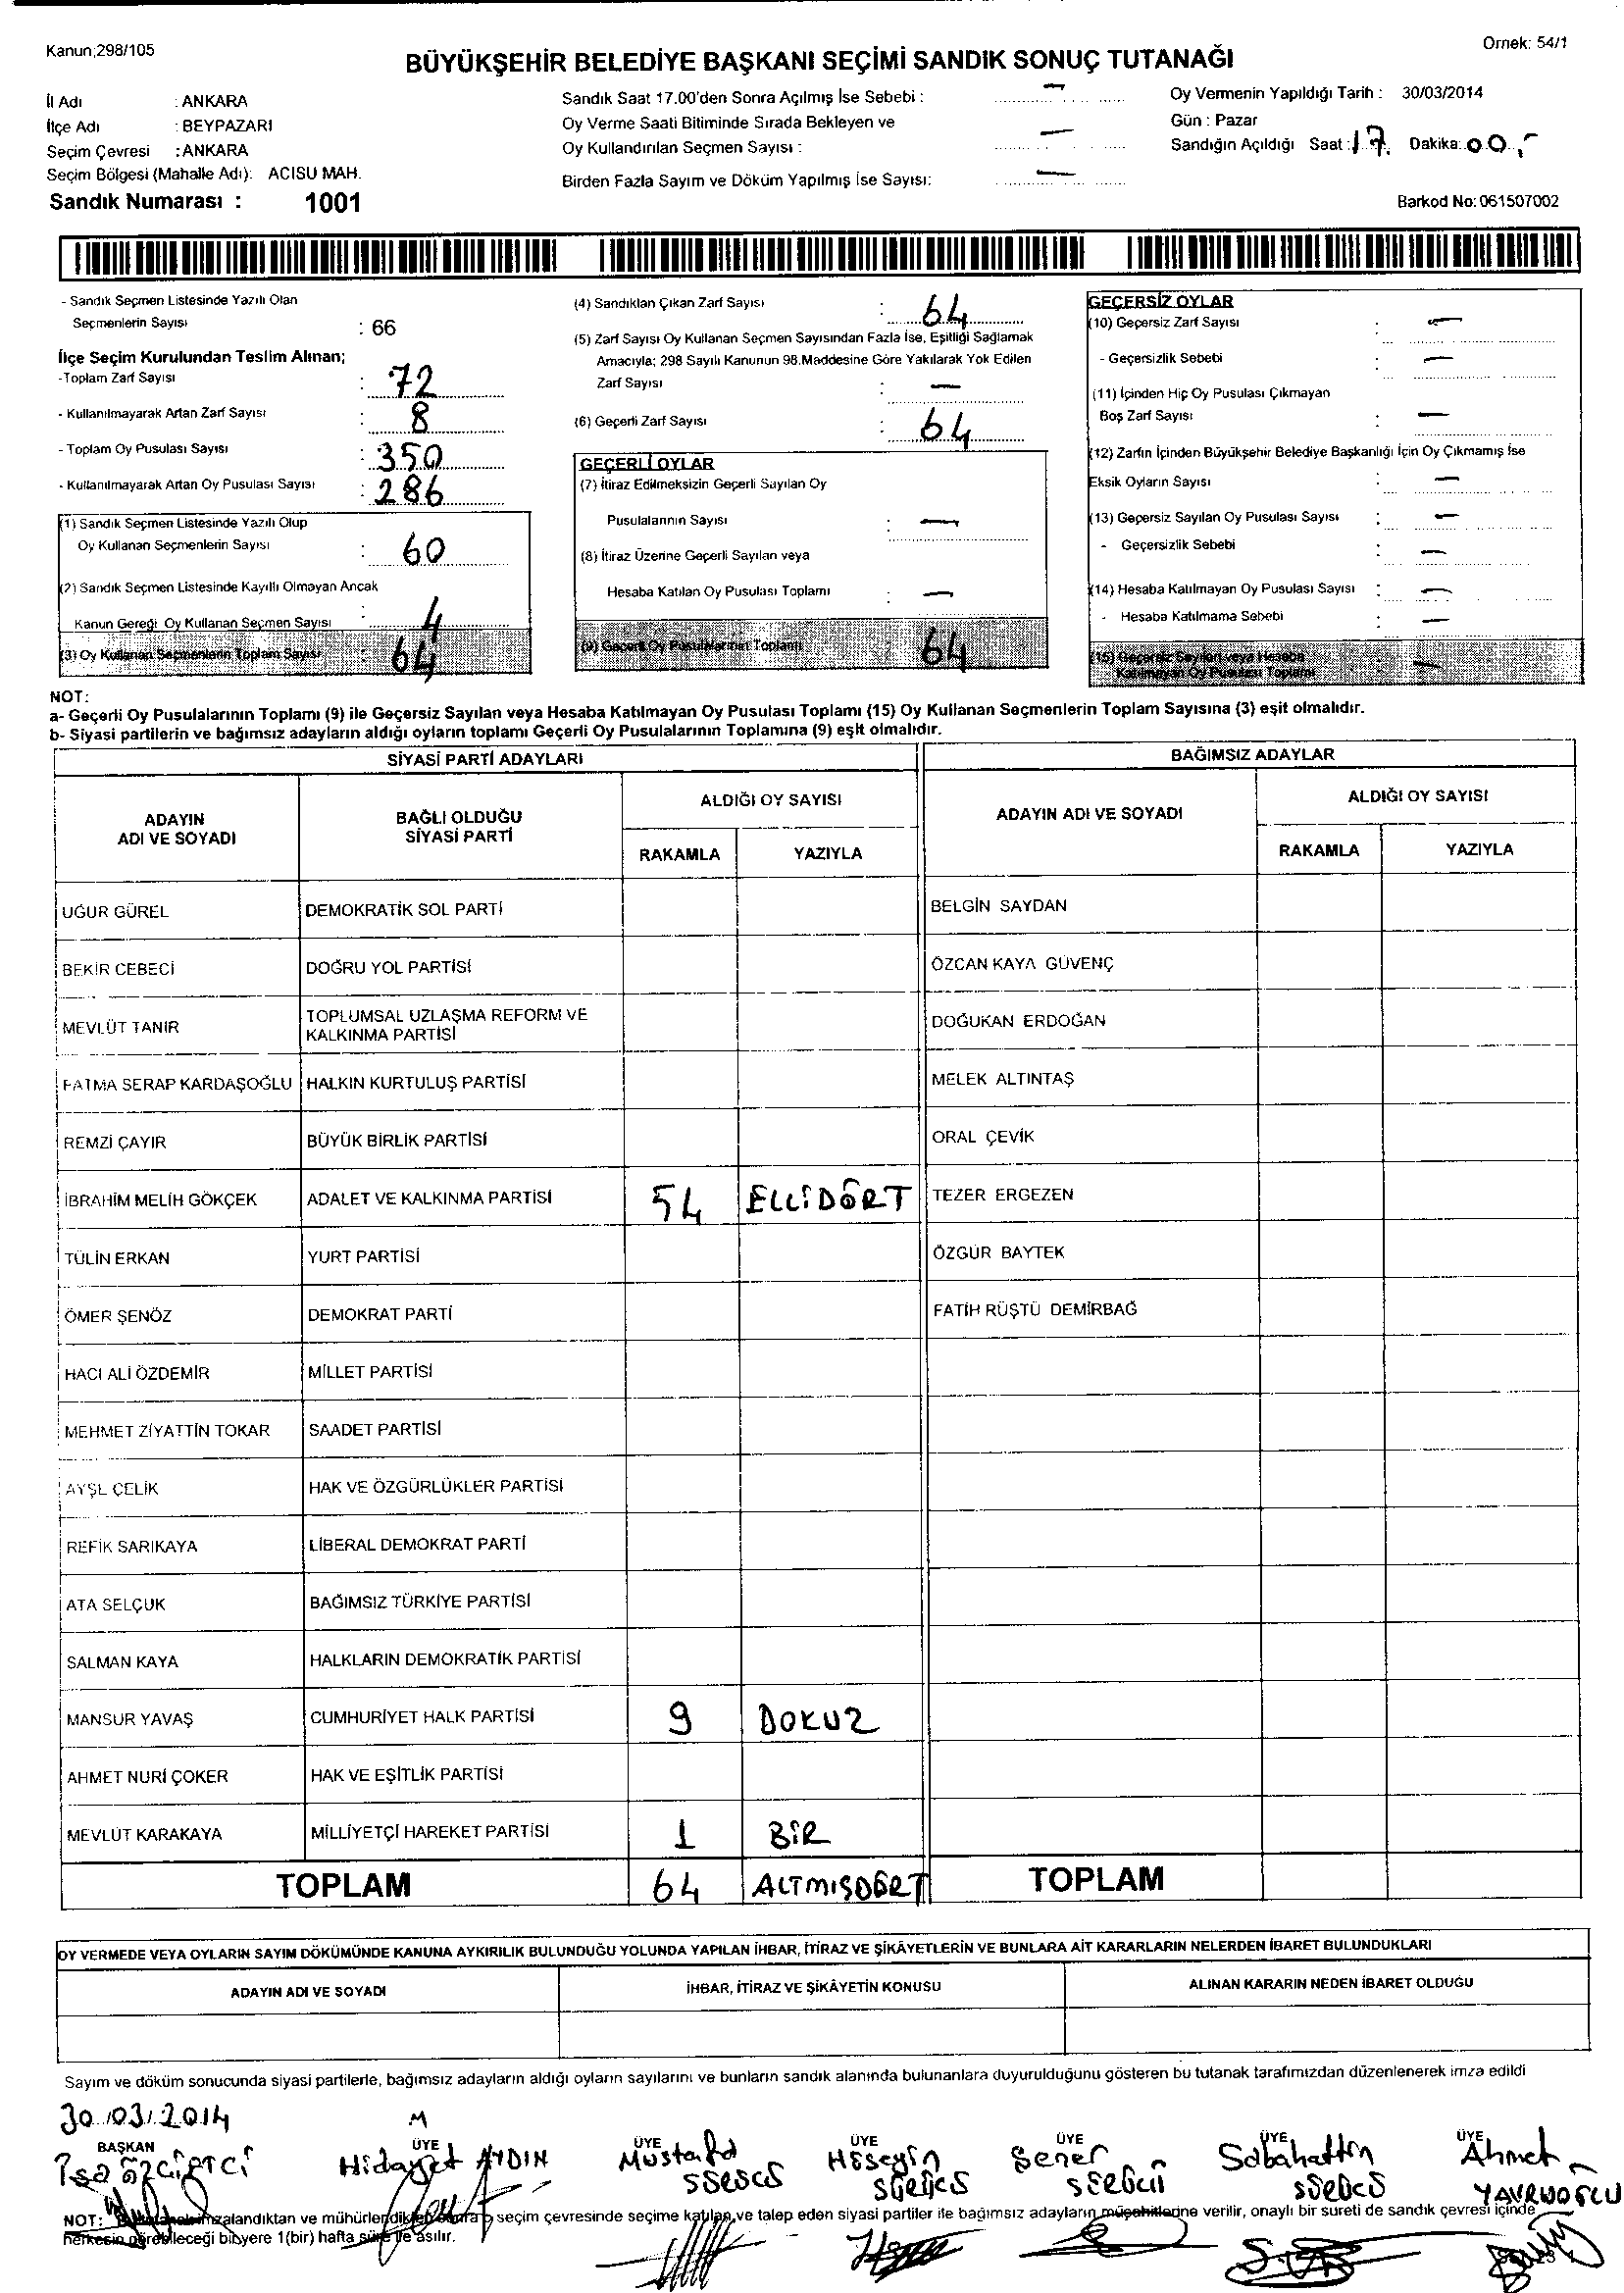 Kanun;298/105
Örnek: 54/1
BÜYÜKŞEHİR BELEDİYE BAŞKANI SEÇİMİ SANDIK SONUÇ TUTANAĞI
İl Adı : ANKARA
İlçe Adı : BEYPAZARI
Seçim Çevresi : ANKARA
Seçim Bölgesi (Mahalle Adı): ACISU MAH.
Sandık Numarası : 1001
Sandık Saat 17.00'den Sonra Açılmış İse Sebebi : —
Oy Verme Saati Bitiminde Sırada Bekleyen ve
Oy Kullandırılan Seçmen Sayısı : —
Birden Fazla Sayım ve Döküm Yapılmış İse Sayısı: —
Oy Vermenin Yapıldığı Tarih : 30/03/2014
Gün : Pazar
Sandığın Açıldığı Saat : 17. Dakika: 00.-
Barkod No: 061507002
- Sandık Seçmen Listesinde Yazılı Olan
Seçmenlerin Sayısı : 66
İlçe Seçim Kurulundan Teslim Alınan;
-Toplam Zarf Sayısı : 72
- Kullanılmayarak Artan Zarf Sayısı : 8
- Toplam Oy Pusulası Sayısı : 350
- Kullanılmayarak Artan Oy Pusulası Sayısı : 286
(1) Sandık Seçmen Listesinde Yazılı Olup
Oy Kullanan Seçmenlerin Sayısı : 60
(2) Sandık Seçmen Listesinde Kayıtlı Olmayan Ancak
Kanun Gereği Oy Kullanan Seçmen Sayısı : 4
(3) Oy Kullanan Seçmenlerin Toplam Sayısı : 64
(4) Sandıktan Çıkan Zarf Sayısı : 64
(5) Zarf Sayısı Oy Kullanan Seçmen Sayısından Fazla İse, Eşitliği Sağlamak
Amacıyla; 298 Sayılı Kanunun 98.Maddesine Göre Yakılarak Yok Edilen
Zarf Sayısı : —
(6) Geçerli Zarf Sayısı : 64
GEÇERLİ OYLAR
(7) İtiraz Edilmeksizin Geçerli Sayılan Oy
Pusulalarının Sayısı : —
(8) İtiraz Üzerine Geçerli Sayılan veya
Hesaba Katılan Oy Pusulası Toplamı : —
(9) Geçerli Oy Pusulalarının Toplamı : 64
GEÇERSİZ OYLAR
(10) Geçersiz Zarf Sayısı : —
- Geçersizlik Sebebi : —
(11) İçinden Hiç Oy Pusulası Çıkmayan
Boş Zarf Sayısı : —
(12) Zarfın İçinden Büyükşehir Belediye Başkanlığı İçin Oy Çıkmamış İse
Eksik Oyların Sayısı : —
(13) Geçersiz Sayılan Oy Pusulası Sayısı : —
- Geçersizlik Sebebi : —
(14) Hesaba Katılmayan Oy Pusulası Sayısı : —
- Hesaba Katılmama Sebebi : —
(15) Geçersiz Sayılan veya Hesaba
Katılmayan Oy Pusulası Toplamı —
NOT:
a- Geçerli Oy Pusulalarının Toplamı (9) ile Geçersiz Sayılan veya Hesaba Katılmayan Oy Pusulası Toplamı (15) Oy Kullanan Seçmenlerin Toplam Sayısına (3) eşit olmalıdır.
b- Siyasi partilerin ve bağımsız adayların aldığı oyların toplamı Geçerli Oy Pusulalarının Toplamına (9) eşit olmalıdır.
SİYASİ PARTİ ADAYLARI
ADAYIN ADI VE SOYADI
BAĞLI OLDUĞU SİYASİ PARTİ
ALDIĞI OY SAYISI
RAKAMLA YAZIYLA
UĞUR GÜREL DEMOKRATİK SOL PARTİ
BEKİR CEBECİ DOĞRU YOL PARTİSİ
MEVLÜT TANIR TOPLUMSAL UZLAŞMA REFORM VE
KALKINMA PARTİSİ
FATMA SERAP KARDAŞOĞLU HALKIN KURTULUŞ PARTİSİ
REMZİ ÇAYIR BÜYÜK BİRLİK PARTİSİ
İBRAHİM MELİH GÖKÇEK ADALET VE KALKINMA PARTİSİ 54 ELLİDÖRT
TÜLİN ERKAN YURT PARTİSİ
ÖMER ŞENÖZ DEMOKRAT PARTİ
HACI ALİ ÖZDEMİR MİLLET PARTİSİ
MEHMET ZİYATTİN TOKAR SAADET PARTİSİ
AYŞE ÇELİK HAK VE ÖZGÜRLÜKLER PARTİSİ
REFİK SARIKAYA LİBERAL DEMOKRAT PARTİ
ATA SELÇUK BAĞIMSIZ TÜRKİYE PARTİSİ
SALMAN KAYA HALKLARIN DEMOKRATİK PARTİSİ
MANSUR YAVAŞ CUMHURİYET HALK PARTİSİ 9 DOKUZ
AHMET NURİ ÇOKER HAK VE EŞİTLİK PARTİSİ
MEVLÜT KARAKAYA MİLLİYETÇİ HAREKET PARTİSİ 1 BİR
TOPLAM 64 ALTMIŞDÖRT
BAĞIMSIZ ADAYLAR
ADAYIN ADI VE SOYADI
ALDIĞI OY SAYISI
RAKAMLA YAZIYLA
BELGİN SAYDAN
ÖZCAN KAYA GÜVENÇ
DOĞUKAN ERDOĞAN
MELEK ALTINTAŞ
ORAL ÇEVİK
TEZER ERGEZEN
ÖZGÜR BAYTEK
FATİH RÜŞTÜ DEMİRBAĞ
TOPLAM
OY VERMEDE VEYA OYLARIN SAYIM DÖKÜMÜNDE KANUNA AYKIRILIK BULUNDUĞU YOLUNDA YAPILAN İHBAR, İTİRAZ VE ŞİKÂYETLERİN VE BUNLARA AİT KARARLARIN NELERDEN İBARET BULUNDUKLARI
ADAYIN ADI VE SOYADI İHBAR, İTİRAZ VE ŞİKÂYETİN KONUSU ALINAN KARARIN NEDEN İBARET OLDUĞU
Sayım ve döküm sonucunda siyasi partilerle, bağımsız adayların aldığı oyların sayılarını ve bunların sandık alanında bulunanlara duyurulduğunu gösteren bu tutanak tarafımızdan düzenlenerek imza edildi
30/03/2014
BAŞKAN ÜYE ÜYE ÜYE ÜYE ÜYE ÜYE
İsa ÖZÇİFTCİ
M Hidayet AYDIN
Mustafa SÜRÜCÜ
Hüseyin SÜRÜCÜ
Şener SÜRÜCÜ
Sabahattin SÜRÜCÜ
Ahmet YAVRUOĞLU
NOT: imzalandıktan ve mühürlendikten sonra seçim çevresinde seçime katılan ve talep eden siyasi partiler ile bağımsız adayların müşahitlerine verilir, onaylı bir sureti de sandık çevresi içinde
herkesin görebileceği bir yere 1(bir) hafta süre ile asılır.